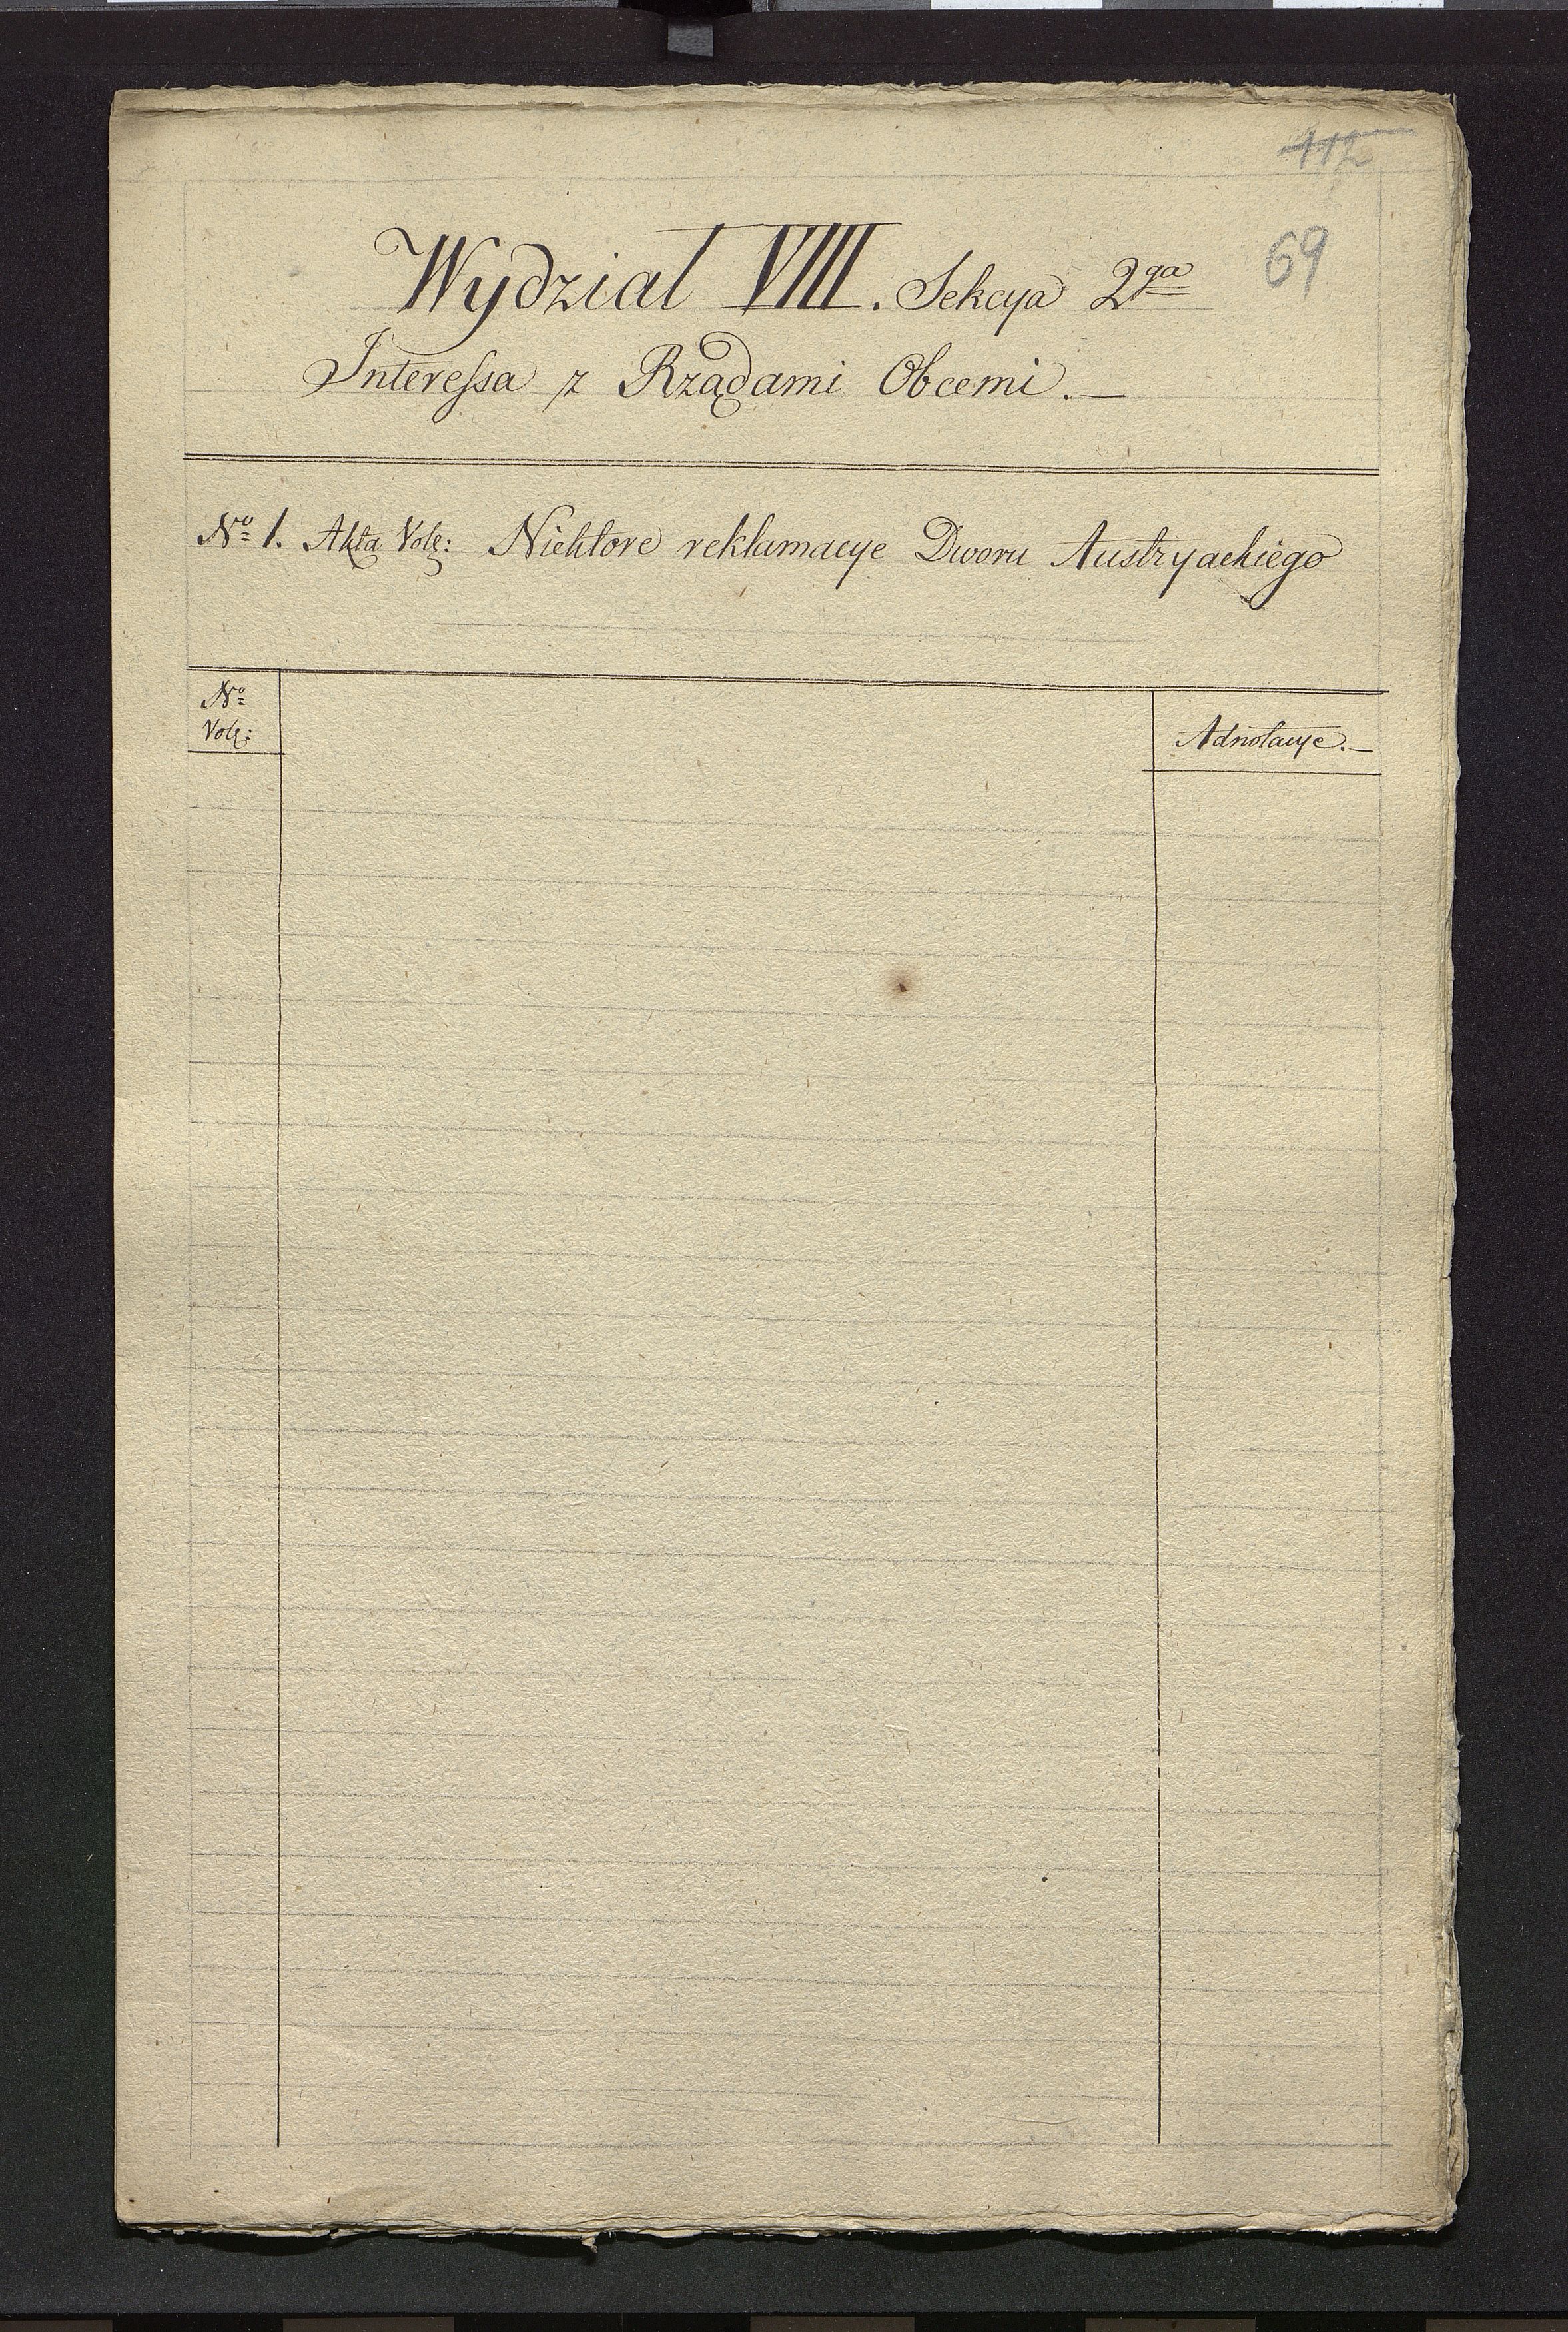 112
69
Wydział VIII. Sekcya 2ga
Interessa z Rządami Obcemi.—
No 1. Akta Vol: Niektore reklamacye Dworu Austryackiego
No
Vol:
Adnotacye.—